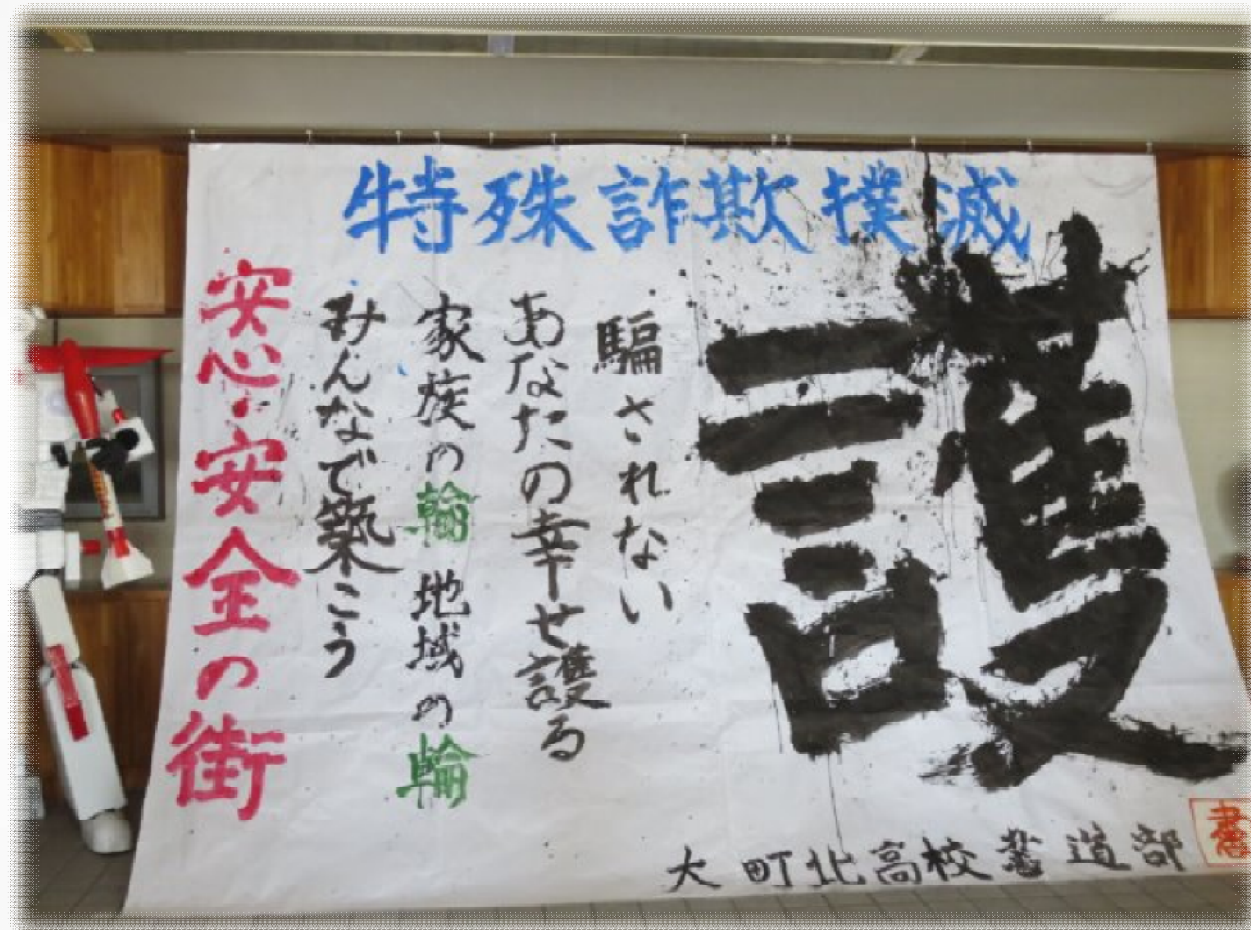 特殊詐欺撲滅
護
騙されない
あなたの幸せ護る
家族の輪 地域の輪
みんなで築こう
安心・安全の街
大町北高校書道部
書